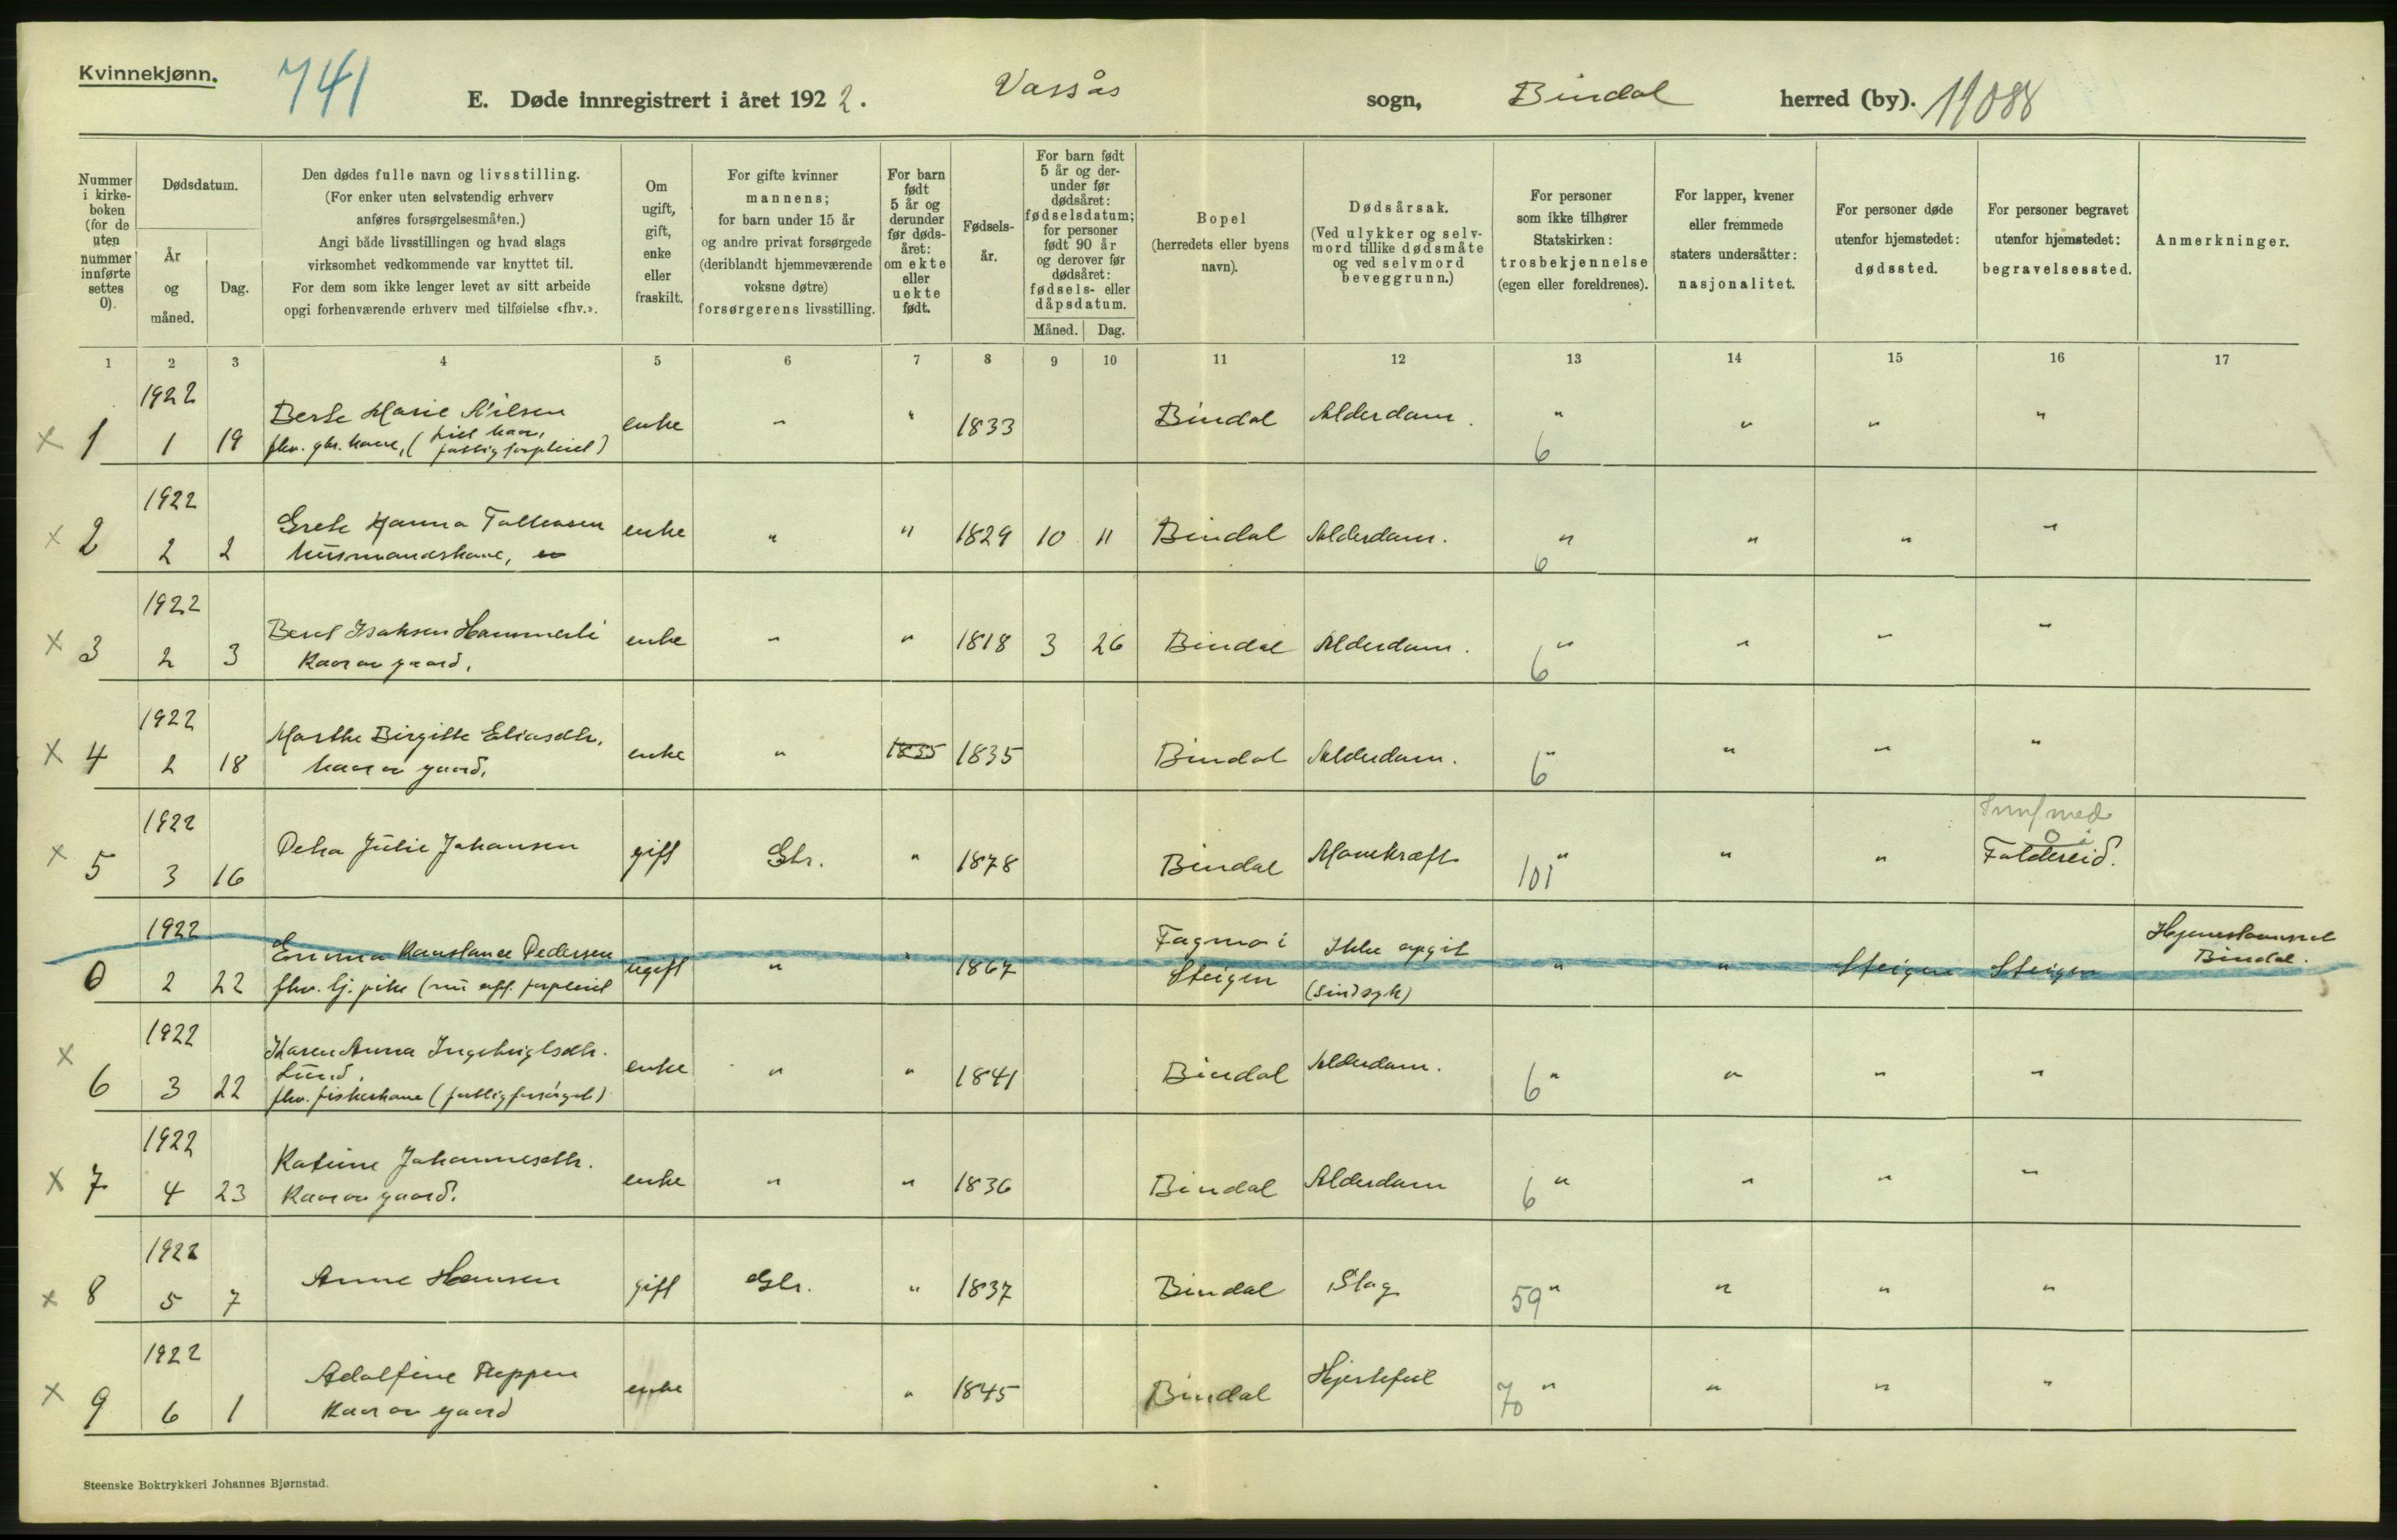 Kvinnekjønn.
741
E. Døde innregistrert i året 1922. Vassås sogn, Bindal herred (by). 11088
Nummer i kirkeboken (for de uten nummer innførte settes 0).
Dødsdatum.
År og måned.
Dag.
Den dødes fulle navn og livsstilling.
(For enker uten selvstendig erhverv
anføres forsørgelsesmåten.)
Angi både livsstillingen og hvad slags
virksomhet vedkommende var knyttet til.
For dem som ikke lenger levet av sitt arbeide
opgi forhenværende erhverv med tilføielse «fhv.».
Om
ugift,
gift,
enke
eller
fraskilt.
For gifte kvinner
mannens;
for barn under 15 år
og andre privat forsørgede
(deriblandt hjemmeværende
voksne døtre)
forsørgerens livsstilling.
For barn
født
5 år og
derunder
før døds-
året:
om ekte
eller
uekte
født.
Fødsels-
år.
For barn født
5 år og der-
under før
dødsåret:
fødselsdatum;
for personer
født 90 år
og derover før
dødsåret:
fødsels- eller
dåpsdatum.
Måned. Dag.
Bopel
(herredets eller byens
navn).
Dødsårsak.
(Ved ulykker og selv-
mord tillike dødsmåte
og ved selvmord
beveggrunn.)
For personer
som ikke tilhører
Statskirken:
trosbekjennelse
(egen eller foreldrenes).
For lapper, kvener
eller fremmede
staters undersåtter:
nasjonalitet.
For personer døde
utenfor hjemstedet:
dødssted.
For personer begravet
utenfor hjemstedet:
begravelsessted.
Anmerkninger.
1 2 3 4 5 6 7 8 9 10 11 12 13 14 15 16 17
1922
x 1 1 19 Berte Marie Nilsen enke " " 1833 Bindal Alderdom. " " " "
fhv. gbr. kone, (fattig forpleiet) 6
1922
x 2 2 2 Grete Hanna Tollevsen enke " " 1829 10 11 Bindal Alderdom. " " " "
husmandskone, 6
1922
x 3 2 3 Beret Isaksen Hammerli enke " " 1818 3 26 Bindal Alderdom. " " " "
Kaar av gaard. 6
1922
x 4 2 18 Marthe Birgitte Eliasdtr. enke " 1835 1835 Bindal Alderdom. " " " "
kaar av gaard. 6
1922
x 5 3 16 Petra Julie Johansen gift Gbr. " 1878 Bindal Mavekræft 101 " " " Foldereid.
1922
0 2 22 Emma Konstance Pedersen ugift " " 1867 Fagmo i Steigen Ikke opgit (sindsyk) " " Steigen Steigen Hjemstavnsret Bindal.
fhv. tj. pike (nu off. forpleiet
1922
x 6 3 22 Karen Anna Ingebrigtsdtr. enke " " 1841 Bindal Alderdom. 6 " " " "
Lund.
fhv. fiskerkone (fattigforsørget)
1922
x 7 4 23 Katrine Johannesdtr. enke " " 1836 Bindal Alderdom 6 " " " "
Kaar av gaard.
1922
x 8 5 7 Anne Hansen gift Gbr. " 1837 Bindal Slag 59 " " " "
1922
x 9 6 1 Adolfine Reppen enke " 1845 Bindal Hjertefeil 70 " " " "
Kaar av gaard
Steenske Boktrykkeri Johannes Bjørnstad.